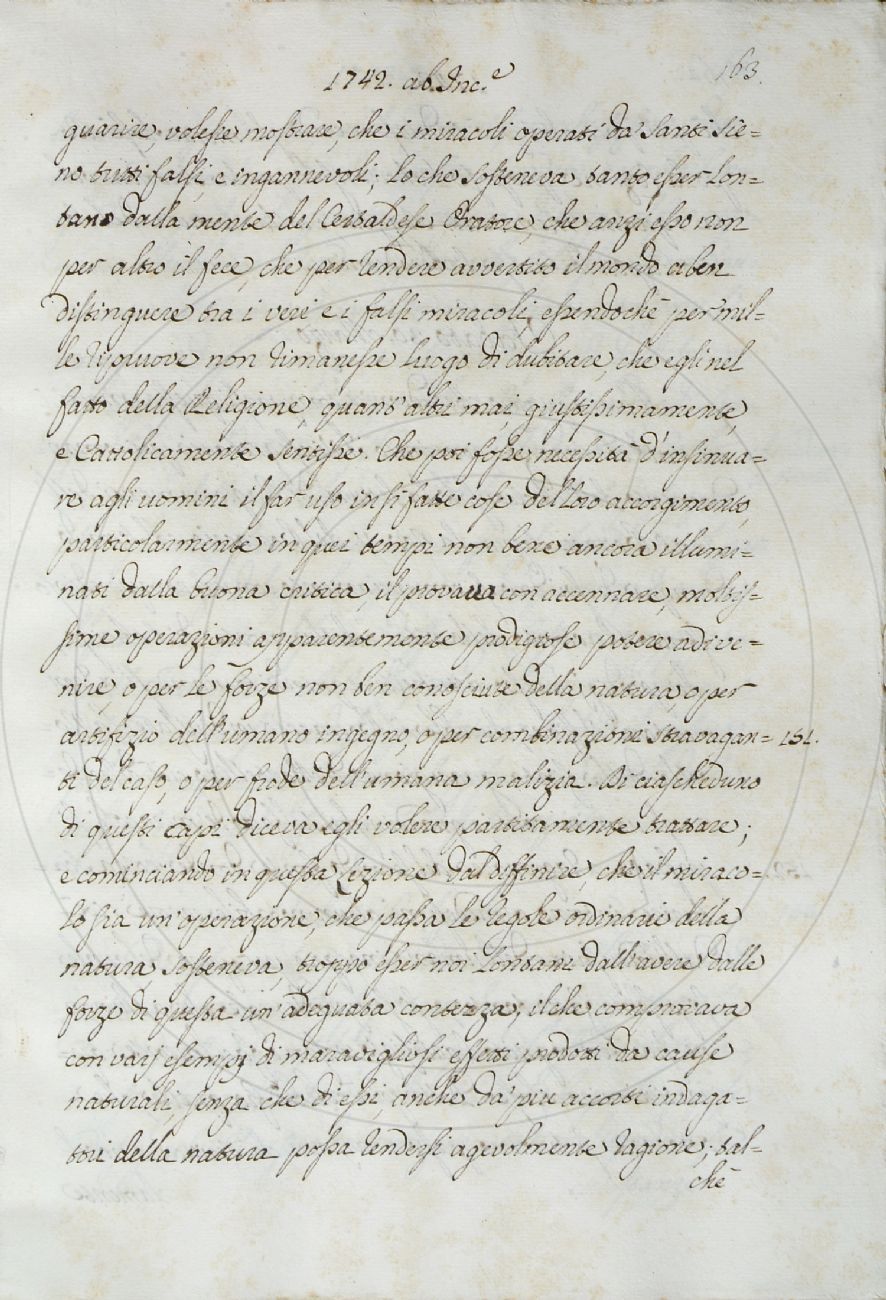 1742. ab. Inc.e
163.
guarire, volesse mostrare, che i miracoli operati da' Santi sie=
no tutti falsi, e ingannevoli; lo che sosteneva tanto esser lon=
tano dalla mente del Certaldese Oratore, che anzi esso non
per altro il fece, che per rendere avvertito il mondo a ben
distinguere tra i veri e i falsi miracoli, essendochè per mil=
le riprove non rimanesse luogo di dubitare, che egli nel
fatto della Religione, quant'altri mai, giustissimamente,
e Cattolicamente sentisse. Che poi fosse necessità d'insinua=
re agli uomini il far uso in sì fatte cose del loro accorgimento,
particolarmente in quei tempi non bene ancora illumi=
nati dalla buona critica, il provava con accennare, moltis=
sime operazioni apparentemente prodigiose potere advve=
nire, o per le forze non ben conosciute della natura, o per
artifizio dell'umano ingegno, o per combinazioni stravagan= 151.
ti del caso, o per frode dell'umana malizia. Di ciascheduno
di questi capi diceva egli volere partitamente trattare;
e cominciando in questa Lezione dal diffinire, che il miraco=
lo sia un'operazione, che passa le regole ordinarie della
natura, sosteneva, troppo esser noi lontani dall'avere dalle
forze di questa un'adeguata contezza; il che comprovava
con varj esempj di maravigliosi effetti prodotti da cause
naturali, senza che di essi, anche da' più accorti indaga=
tori della natura possa rendersi agevolmente ragione; tal=
chè